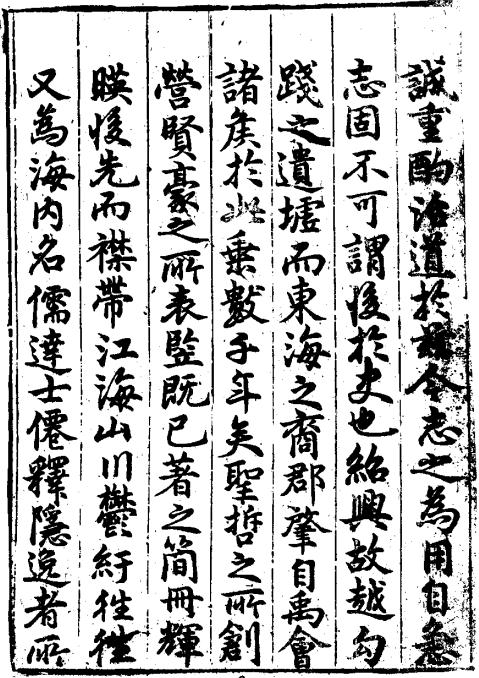 誠重酌治道於茲今志之為用自急
志固不可謂後於史也紹興故越勾
踐之遺墟而東海之裔郡肇自禹會
諸矦於此乗數千年矣聖哲之所創
營賢豪之所表竪既已著之簡冊輝
暎後先而襟帶江海山川鬱紆徃徃
又為海内名儒達士僊釋隱逸者所